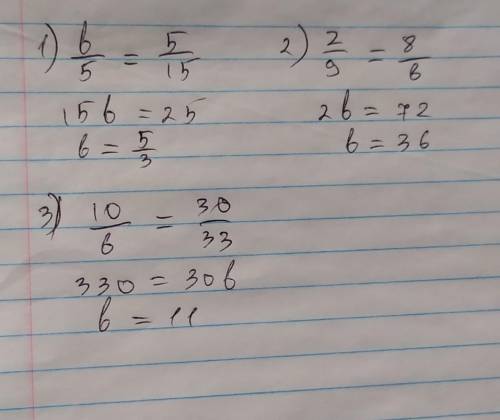 1) b/5 = 5/15
15b = 25
b = 5/3
2) 2/9 = 8/b
2b = 72
b = 36
3) 10/b = 30/33
330 = 30b
b = 11